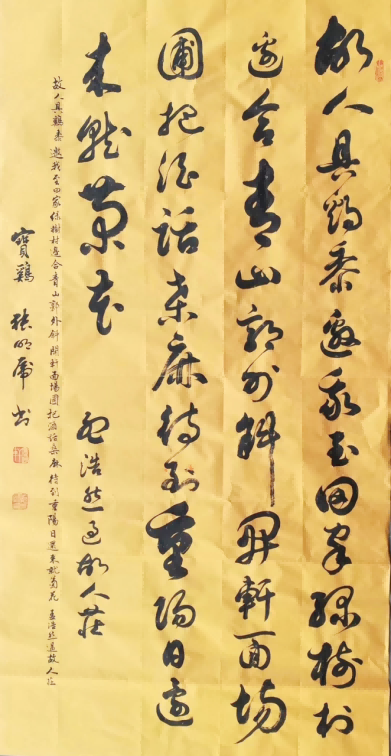 故人具鷄黍邀我至田家綠樹村
邊合青山郭外斜開軒面場
圃把酒話桑麻待到重陽日還
來就菊花 孟浩然過故人莊
故人具鷄黍邀我至田家綠樹村邊合青山郭外斜開軒面場圃把酒話桑麻待到重陽日還來就菊花 孟浩然過故人莊
寶鷄 張明虎書